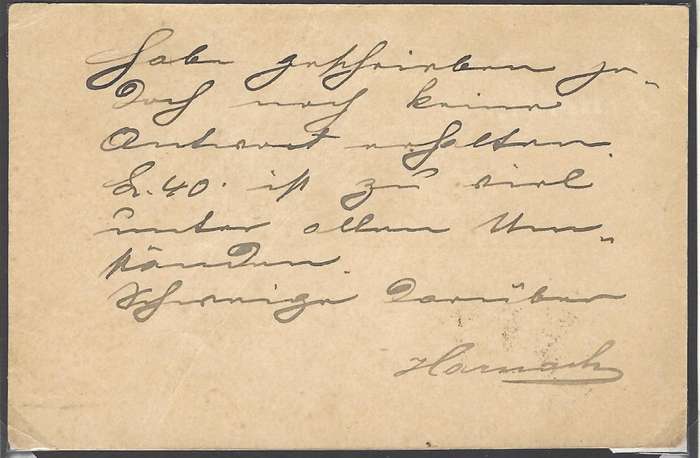 Habe geschrieben je-
doch noch keine
Antwort erhalten.
40. ist zu viel
unter allen Um-
ständen.
Schweige darüber